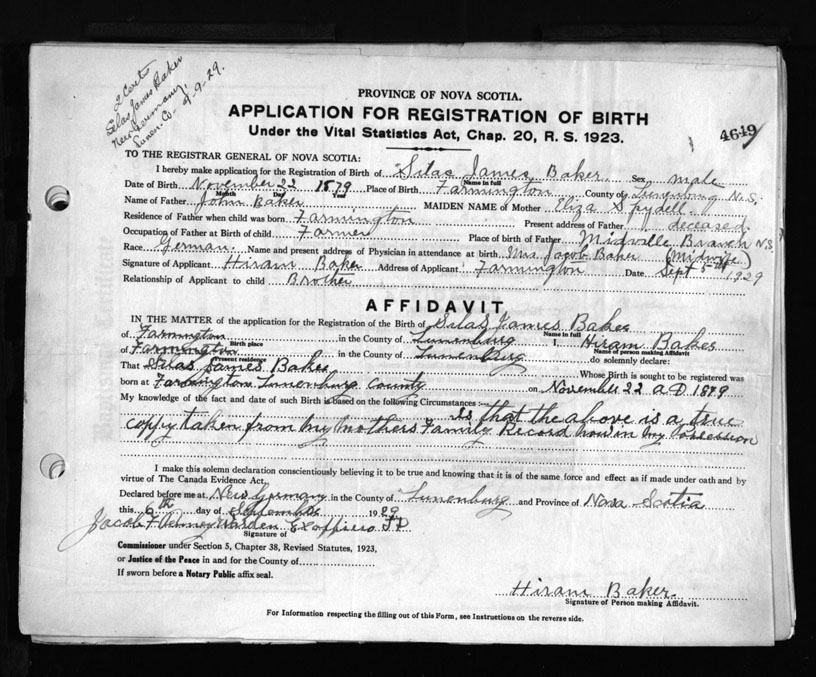 2 Cert
Silas James Baker
New Germany,
Lunen. Co. 9-9-29.
PROVINCE OF NOVA SCOTIA.
APPLICATION FOR REGISTRATION OF BIRTH
4649
Under the Vital Statistics Act, Chap. 20, R. S. 1923.
TO THE REGISTRAR GENERAL OF NOVA SCOTIA:
I hereby make application for the Registration of Birth of Silas James Baker Sex male
Name in full
Date of Birth November 22 1879 Place of Birth Farmington County of Lunenburg N.S.
Month Day Year
Name of Father John Baker MAIDEN NAME of Mother Eliza Spydell
Residence of Father when child was born Farmington Present address of Father deceased
Occupation of Father at Birth of child Farmer Place of Birth of Father Midville Branch N.S
Race German Name and present address of Physician in attendance at birth Mrs. Jacob Baker (Midwife)
Signature of Applicant Hiram Baker Address of Applicant Farmington Date Sept 5th 1929
Relationship of Applicant to child Brother
AFFIDAVIT
IN THE MATTER of the application for the Registration of the Birth of Silas James Baker
Name in full
of Farmington in the County of Lunenburg I, Hiram Baker
Birth place Name of person making Affidavit
of Farmington in the County of Lunenburg do solemnly declare:
Present residence
That Silas James Baker Whose Birth is sought to be registered was
born at Farmington Lunenburg County on November 22 A D 1879
My knowledge of the fact and date of such Birth is based on the following Circumstances :—
Is that the above is a true
coppy taken from my mothers Family Record now in my Possession
I make this solemn declaration conscientiously believing it to be true and knowing that it is of the same force and effect as if made under oath and by
virtue of The Canada Evidence Act.
Declared before me at New Germany in the County of Lunenburg and Province of Nova Scotia
this 6th day of September 1929
Jacob F Warden Exofficio J P
Signature of
Commissioner under Section 5, Chapter 38, Revised Statutes, 1923,
or Justice of the Peace in and for the County of
If sworn before a Notary Public affix seal.
Hiram Baker.
Signature of Person making Affidavit.
For Information respecting the filling out of this Form, see Instructions on the reverse side.